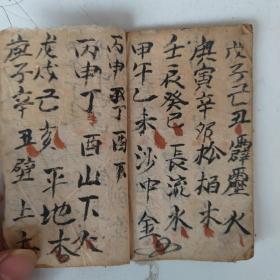 戊子己丑霹靂火
庚寅辛卯松柏木
壬辰癸巳長流水
甲午乙未沙中金
丙申丁酉
丙申丁酉山下火
戊戌己亥平地木
庚子辛丑壁上土